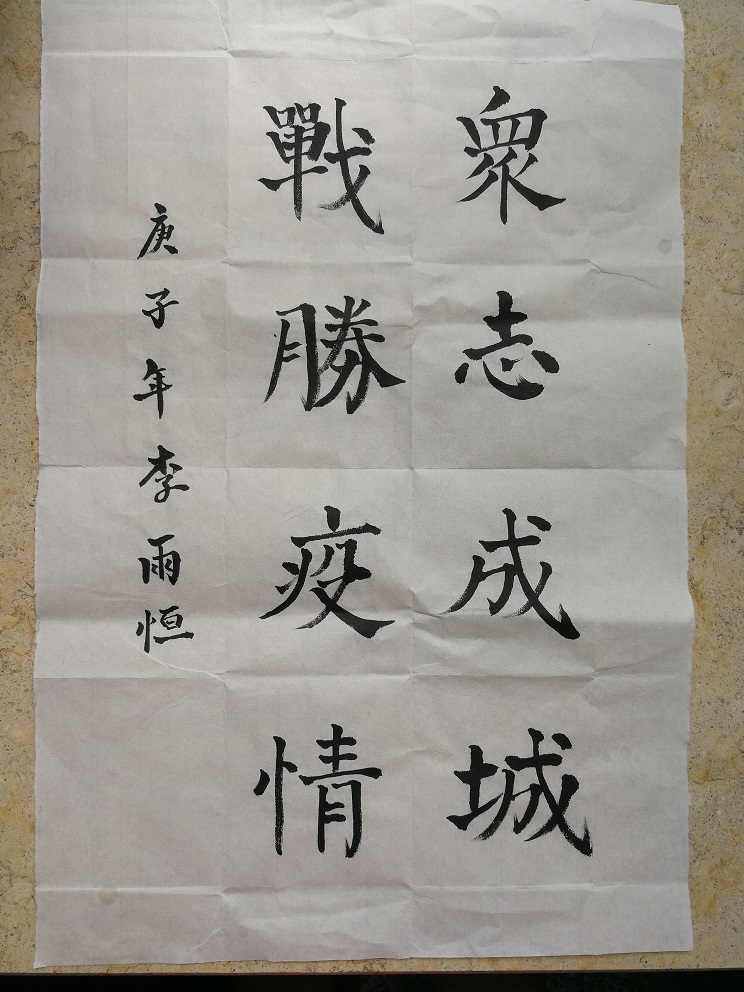 眾志成城
戰勝疫情
庚子年李雨恒